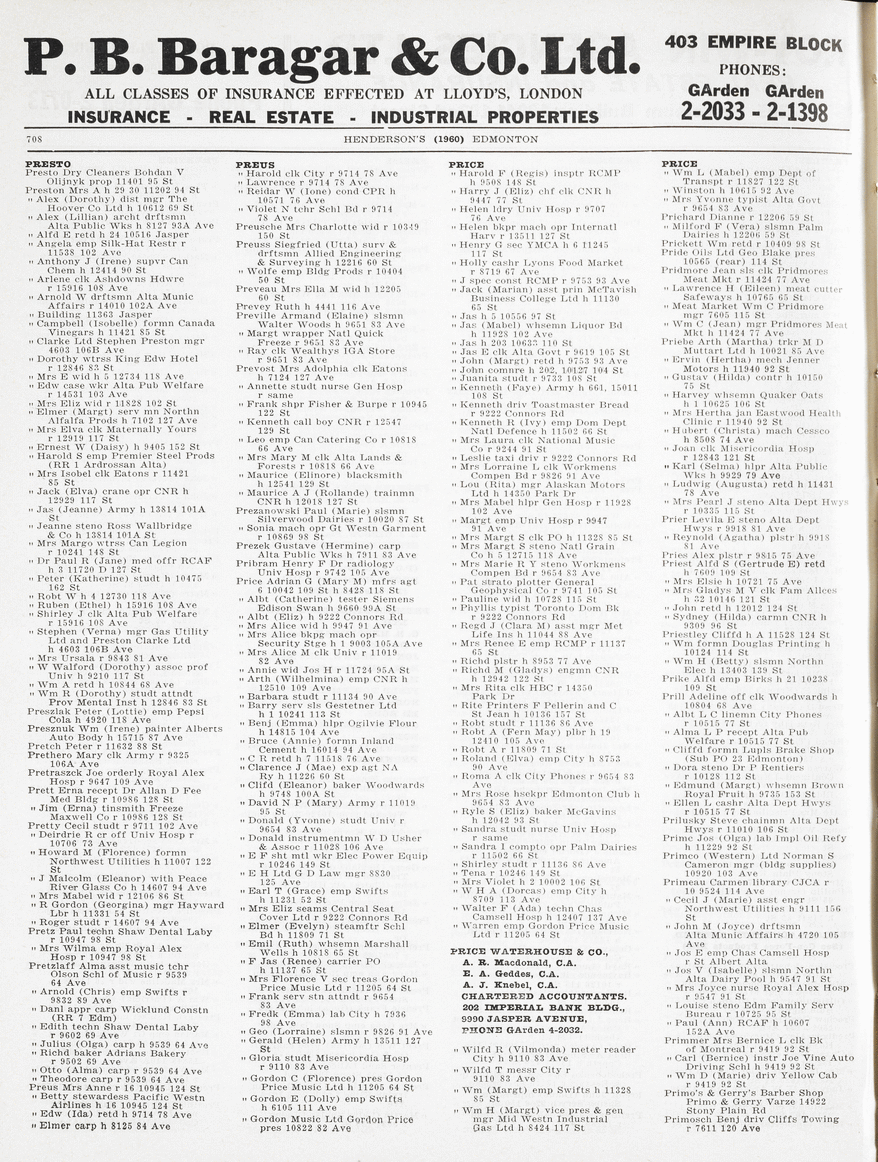 P. B. Baragar & Co. Ltd.
ALL CLASSES OF INSURANCE EFFECTED AT LLOYD'S, LONDON
INSURANCE - REAL ESTATE - INDUSTRIAL PROPERTIES
403 EMPIRE BLOCK
PHONES:
GArden GArden
2-2033 - 2-1398
708
HENDERSON'S (1960) EDMONTON
PRESTO
Presto Dry Cleaners Bohdan V
Olijnyk prop 11401 95 St
Preston Mrs A h 29 30 11202 94 St
" Alex (Dorothy) dist mgr The
Hoover Co Ltd h 10612 69 St
" Alex (Lillian) archt drftsmn
Alta Public Wks h 8127 93A Ave
" Alfd E retd h 24 10516 Jasper
" Angela emp Silk-Hat Restr r
11538 102 Ave
" Anthony J (Irene) supvr Can
Chem h 12414 90 St
" Arlene clk Ashdowns Hdwre
r 15916 108 Ave
" Arnold W drftsmn Alta Munic
Affairs r 14010 102A Ave
" Building 11363 Jasper
" Campbell (Isobelle) formn Canada
Vinegars h 11421 85 St
" Clarke Ltd Stephen Preston mgr
4603 106B Ave
" Dorothy wtrss King Edw Hotel
r 12846 83 St
" Mrs E wid h 5 12734 118 Ave
" Edw case wkr Alta Pub Welfare
r 14531 103 Ave
" Mrs Eliz wid r 11828 102 St
" Elmer (Margt) serv mn Northn
Alfalfa Prods h 7102 127 Ave
" Mrs Elva clk Maternally Yours
r 12919 117 St
" Ernest W (Daisy) h 9405 152 St
" Harold S emp Premier Steel Prods
(RR 1 Ardrossan Alta)
" Mrs Isobel clk Eatons r 11421
85 St
" Jack (Elva) crane opr CNR h
12929 117 St
" Jas (Jeanne) Army h 13814 101A
St
" Jeanne steno Ross Wallbridge
& Co h 13814 101A St
" Mrs Margo wtrss Can Legion
r 10241 148 St
" Dr Paul R (Jane) med offr RCAF
h 3 11720 D 127 St
" Peter (Katherine) studt h 10475
162 St
" Robt W h 4 12730 118 Ave
" Ruben (Ethel) h 15916 108 Ave
" Shirley J clk Alta Pub Welfare
r 15916 108 Ave
" Stephen (Verna) mgr Gas Utility
Ltd and Preston Clarke Ltd
h 4603 106B Ave
" Mrs Ursala r 9843 81 Ave
" W Walford (Dorothy) assoc prof
Univ h 9210 117 St
" Wm A retd h 10844 68 Ave
" Wm R (Dorothy) studt attndt
Prov Mental Inst h 12846 83 St
Preszlak Peter (Lottie) emp Pepsi
Cola h 4920 118 Ave
Presznuk Wm (Irene) painter Alberts
Auto Body h 15715 87 Ave
Pretch Peter r 11632 88 St
Prethero Mary clk Army r 9325
106A Ave
Pretraszck Joe orderly Royal Alex
Hosp r 9647 109 Ave
Prett Erna recept Dr Allan D Fee
Med Bldg r 10986 128 St
" Jim (Erna) tinsmith Freeze
Maxwell Co r 10986 128 St
Pretty Cecil studt r 9711 102 Ave
" Deirdrie R cr off Univ Hosp r
10706 73 Ave
" Howard M (Florence) formn
Northwest Utilities h 11007 122
St
" J Malcolm (Eleanor) with Peace
River Glass Co h 14607 94 Ave
" Mrs Mabel wid r 12106 86 St
" R Gordon (Georgina) mgr Hayward
Lbr h 11331 54 St
" Roger studt r 14607 94 Ave
Pretz Paul techn Shaw Dental Laby
r 10947 98 St
" Mrs Wilma emp Royal Alex
Hosp r 10947 98 St
Pretzlaff Alma asst music tchr
Olson Schl of Music r 9539
64 Ave
" Arnold (Chris) emp Swifts r
9832 89 Ave
" Danl appr carp Wicklund Constn
(RR 7 Edm)
" Edith techn Shaw Dental Laby
r 9602 69 Ave
" Julius (Olga) carp h 9539 64 Ave
" Richd baker Adrians Bakery
r 9502 69 Ave
" Otto (Alma) carp r 9539 64 Ave
" Theodore carp r 9539 64 Ave
Preus Mrs Anne r 16 10945 124 St
" Betty stewardess Pacific Westn
Airlines h 16 10945 124 St
" Edw (Ida) retd h 9714 78 Ave
" Elmer carp h 8125 84 Ave
PREUS
" Harold clk City r 9714 78 Ave
" Lawrence r 9714 78 Ave
" Reidar W (Ione) cond CPR h
10571 76 Ave
" Violet N tchr Schl Bd r 9714
78 Ave
Preusche Mrs Charlotte wid r 10349
150 St
Preuss Siegfried (Utta) surv &
drftsmn Allied Engineering
& Surveying h 12216 60 St
" Wolfe emp Bldg Prods r 10404
50 St
Preveau Mrs Ella M wid h 12205
60 St
Prevey Ruth h 4441 116 Ave
Preville Armand (Elaine) slsmn
Walter Woods h 9651 83 Ave
" Margt wrapper Natl Quick
Freeze r 9651 83 Ave
" Ray clk Wealthys IGA Store
r 9651 83 Ave
Prevost Mrs Adolphia clk Eatons
h 7124 127 Ave
" Annette studt nurse Gen Hosp
r same
" Frank shpr Fisher & Burpe r 10945
122 St
" Kenneth call boy CNR r 12547
129 St
" Leo emp Can Catering Co r 10818
66 Ave
" Mrs Mary M clk Alta Lands &
Forests r 10818 66 Ave
" Maurice (Elinore) blacksmith
h 12541 129 St
" Maurice A J (Rollande) trainmn
CNR h 12018 127 St
Prezanowski Paul (Marie) slsmn
Silverwood Dairies h 10020 87 St
" Sonia mach opr Gt Westn Garment
r 10869 98 St
Prezek Gustave (Hermine) carp
Alta Public Wks h 7911 83 Ave
Pribram Henry F Dr radiology
Univ Hosp r 9742 105 Ave
Price Adrian G (Mary M) mfrs agt
6 10042 109 St h 8428 118 St
" Albt (Catherine) tester Siemens
Edison Swan h 9660 99A St
" Albt (Eliz) h 9222 Connors Rd
" Mrs Alice wid h 9947 91 Ave
" Mrs Alice bkpg mach opr
Security Stge h 1 9003 105A Ave
" Mrs Alice M clk Univ r 11019
82 Ave
" Annie wid Jos H r 11724 95A St
" Arth (Wilhelmina) emp CNR h
12510 109 Ave
" Barbara studt r 11134 90 Ave
" Barry serv sls Gestetner Ltd
h 1 10241 113 St
" Benj (Emma) hlpr Ogilvie Flour
h 14815 104 Ave
" Bruce (Annie) formn Inland
Cement h 16014 94 Ave
" C R retd h 7 11518 76 Ave
" Clarence J (Mae) exp agt NA
Ry h 11226 60 St
" Clifd (Eleanor) baker Woodwards
h 9748 100A St
" David N P (Mary) Army r 11019
95 St
" Donald (Yvonne) studt Univ r
9654 83 Ave
" Donald instrumentmn W D Usher
& Assoc r 11028 106 Ave
" E F sht mtl wkr Elec Power Equip
r 10246 149 St
" E H Ltd G D Law mgr 8830
125 Ave
" Earl T (Grace) emp Swifts
h 11231 52 St
" Mrs Eliz seams Central Seat
Cover Ltd r 9222 Connors Rd
" Elmer (Evelyn) steamftr Schl
Bd h 11809 71 St
" Emil (Ruth) whsemn Marshall
Wells h 10818 65 St
" F Jas (Renee) carrier PO
h 11137 65 St
" Mrs Florence V sec treas Gordon
Price Music Ltd r 11205 64 St
" Frank serv stn attndt r 9654
83 Ave
" Fredk (Emma) lab City h 7936
98 Ave
" Geo (Lorraine) slsmn r 9826 91 Ave
" Gerald (Helen) Army h 13511 127
St
" Gloria studt Misericordia Hosp
r 9110 83 Ave
" Gordon C (Florence) pres Gordon
Price Music Ltd h 11205 64 St
" Gordon E (Dolly) emp Swifts
h 6105 111 Ave
" Gordon Music Ltd Gordon Price
pres 10822 82 Ave
PRICE
" Harold F (Regis) insptr RCMP
h 9508 148 St
" Harry J (Eliz) chf clk CNR h
9447 77 St
" Helen ldry Univ Hosp r 9707
76 Ave
" Helen bkpr mach opr Internatl
Harv r 13511 127 St
" Henry G sec YMCA h 6 11245
117 St
" Holly cashr Lyons Food Market
r 8719 67 Ave
" J spec const RCMP r 9753 93 Ave
" Jack (Marian) asst prin McTavish
Business College Ltd h 11130
65 St
" Jas h 5 10556 97 St
" Jas (Mabel) whsemn Liquor Bd
h 11928 102 Ave
" Jas h 203 10633 110 St
" Jas E clk Alta Govt r 9619 105 St
" John (Margt) retd h 9753 93 Ave
" John comnre h 202, 10127 104 St
" Juanita studt r 9733 108 St
" Kenneth (Faye) Army h 661, 15011
108 St
" Kenneth driv Toastmaster Bread
r 9222 Connors Rd
" Kenneth R (Ivy) emp Dom Dept
Natl Defence h 11502 66 St
" Mrs Laura clk National Music
Co r 9244 91 St
" Leslie taxi driv r 9222 Connors Rd
" Mrs Lorraine L clk Workmens
Compen Bd r 9826 91 Ave
" Lou (Rita) mgr Alaskan Motors
Ltd h 14350 Park Dr
" Mrs Mabel hlpr Gen Hosp r 11928
102 Ave
" Margt emp Univ Hosp r 9947
91 Ave
" Mrs Margt S clk PO h 11328 85 St
" Mrs Margt S steno Natl Grain
Co h 5 12715 118 Ave
" Mrs Marie R Y steno Workmens
Compen Bd r 9654 83 Ave
" Pat strato plotter General
Geophysical Co r 9741 105 St
" Pauline wid h 10728 115 St
" Phyllis typist Toronto Dom Bk
r 9222 Connors Rd
" Regd J (Clara M) asst mgr Met
Life Ins h 11044 88 Ave
" Mrs Renee E emp RCMP r 11137
65 St
" Richd plstr h 8953 77 Ave
" Richd M (Gladys) engmn CNR
h 12942 122 St
" Mrs Rita clk HBC r 14350
Park Dr
" Rite Printers F Pellerin and C
St Jean h 10136 157 St
" Robt studt r 11136 86 Ave
" Robt A (Fern May) plbr h 19
12410 105 Ave
" Robt A r 11809 71 St
" Roland (Elva) emp City h 8753
90 Ave
" Roma A clk City Phones r 9654 83
Ave
" Mrs Rose hsekpr Edmonton Club h
9654 83 Ave
" Ryle S (Eliz) baker McGavins
h 12042 93 St
" Sandra studt nurse Univ Hosp
r same
" Sandra I compto opr Palm Dairies
r 11502 66 St
" Shirley studt r 11136 86 Ave
" Tena r 10246 149 St
" Mrs Violet h 2 10002 106 St
" W H A (Dorcas) emp City h
8709 113 Ave
" Walter F (Ada) techn Chas
Camsell Hosp h 12407 137 Ave
" Warren emp Gordon Price Music
Ltd r 11205 64 St
PRICE WATERHOUSE & CO.,
A. R. Macdonald, C.A.
E. A. Geddes, C.A.
A. J. Knebel, C.A.
CHARTERED ACCOUNTANTS.
202 IMPERIAL BANK BLDG.,
9990 JASPER AVENUE,
PHONE GArden 4-2032.
" Wilfd R (Vilmonda) meter reader
City h 9110 83 Ave
" Wilfd T messr City r
9110 83 Ave
" Wm (Margt) emp Swifts h 11328
85 St
" Wm H (Margt) vice pres & gen
mgr Mid Westn Industrial
Gas Ltd h 8424 117 St
PRICE
" Wm L (Mabel) emp Dept of
Transpt r 11827 122 St
" Winston h 10615 92 Ave
" Mrs Yvonne typist Alta Govt
r 9654 83 Ave
Prichard Dianne r 12206 59 St
" Milford F (Vera) slsmn Palm
Dairies h 12206 59 St
Prickett Wm retd h 10409 98 St
Pride Oils Ltd Geo Blake pres
10565 (rear) 114 St
Pridmore Jean sls clk Pridmores
Meat Mkt r 11424 77 Ave
" Lawrence H (Eileen) meat cutter
Safeways h 10765 65 St
" Meat Market Wm C Pridmore
mgr 7605 115 St
" Wm C (Jean) mgr Pridmores Meat
Mkt h 11424 77 Ave
Priebe Arth (Martha) trkr M D
Muttart Ltd h 10021 85 Ave
" Ervin (Hertha) mech Jenner
Motors h 11940 92 St
" Gustav (Hilda) contr h 10150
75 St
" Harvey whsemn Quaker Oats
h 1 10625 106 St
" Mrs Hertha jan Eastwood Health
Clinic r 11940 92 St
" Hubert (Christa) mach Cessco
h 8508 74 Ave
" Joan clk Misericordia Hosp
r 12843 121 St
" Karl (Selma) hlpr Alta Public
Wks h 9929 79 Ave
" Ludwig (Augusta) retd h 11431
78 Ave
" Mrs Pearl J steno Alta Dept Hwys
r 10335 115 St
Prier Levila E steno Alta Dept
Hwys r 9918 81 Ave
" Reynold (Agatha) plstr h 9918
81 Ave
Pries Alex plstr r 9815 75 Ave
Priest Alfd S (Gertrude E) retd
h 7609 109 St
" Mrs Elsie h 10721 75 Ave
" Mrs Gladys M V clk Fam Allces
h 32 10146 121 St
" John retd h 12012 124 St
" Sydney (Hilda) carmn CNR h
9309 96 St
Priestley Cliffd h A 11528 124 St
" Wm formn Douglas Printing h
10124 114 St
" Wm H (Betty) slsmn Northn
Elec h 13403 139 St
Prike Alfd emp Birks h 21 10238
109 St
Prill Adeline off clk Woodwards h
10804 68 Ave
" Albt L C linemn City Phones
r 10515 77 St
" Alma L P recept Alta Pub
Welfare r 10515 77 St
" Cliffd formn Lupls Brake Shop
(Sub PO 23 Edmonton)
" Dora steno Dr P Rentiers
r 10128 112 St
" Edmund (Margt) whsemn Brown
Royal Fruit h 9735 153 St
" Ellen L cashr Alta Dept Hwys
r 10515 77 St
Prilusky Steve chainmn Alta Dept
Hwys r 11010 106 St
Primc Jos (Olga) lab Impl Oil Refy
h 11229 92 St
Primco (Western) Ltd Norman S
Cameron mgr (bldg supplies)
10920 103 Ave
Primeau Carmen library CJCA r
10 9524 114 Ave
" Cecil J (Marie) asst engr
Northwest Utilities h 9111 156
St
" John M (Joyce) drftsmn
Alta Munic Affairs h 4720 105
Ave
" Jos E emp Chas Camsell Hosp
r St Albert Alta
" Jos V (Isobelle) slsmn Northn
Alta Dairy Pool h 9547 91 St
" Mrs Joyce nurse Royal Alex Hosp
r 9547 91 St
" Louise steno Edm Family Serv
Bureau r 10725 95 St
" Paul (Ann) RCAF h 10607
152A Ave
Primmer Mrs Bernice L clk Bk
of Montreal r 9419 92 St
" Carl (Bernice) instr Joe Vine Auto
Driving Schl h 9419 92 St
" Wm D (Marie) driv Yellow Cab
r 9419 92 St
Primo's & Gerry's Barber Shop
Primo & Gerry Varze 14922
Stony Plain Rd
Primosch Benj driv Cliffs Towing
r 7611 120 Ave